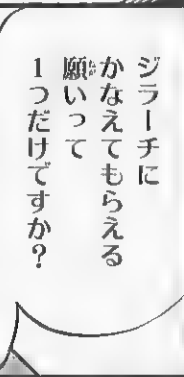 ジラーチに
かなえてもらえる
願いって
1つだけですか?